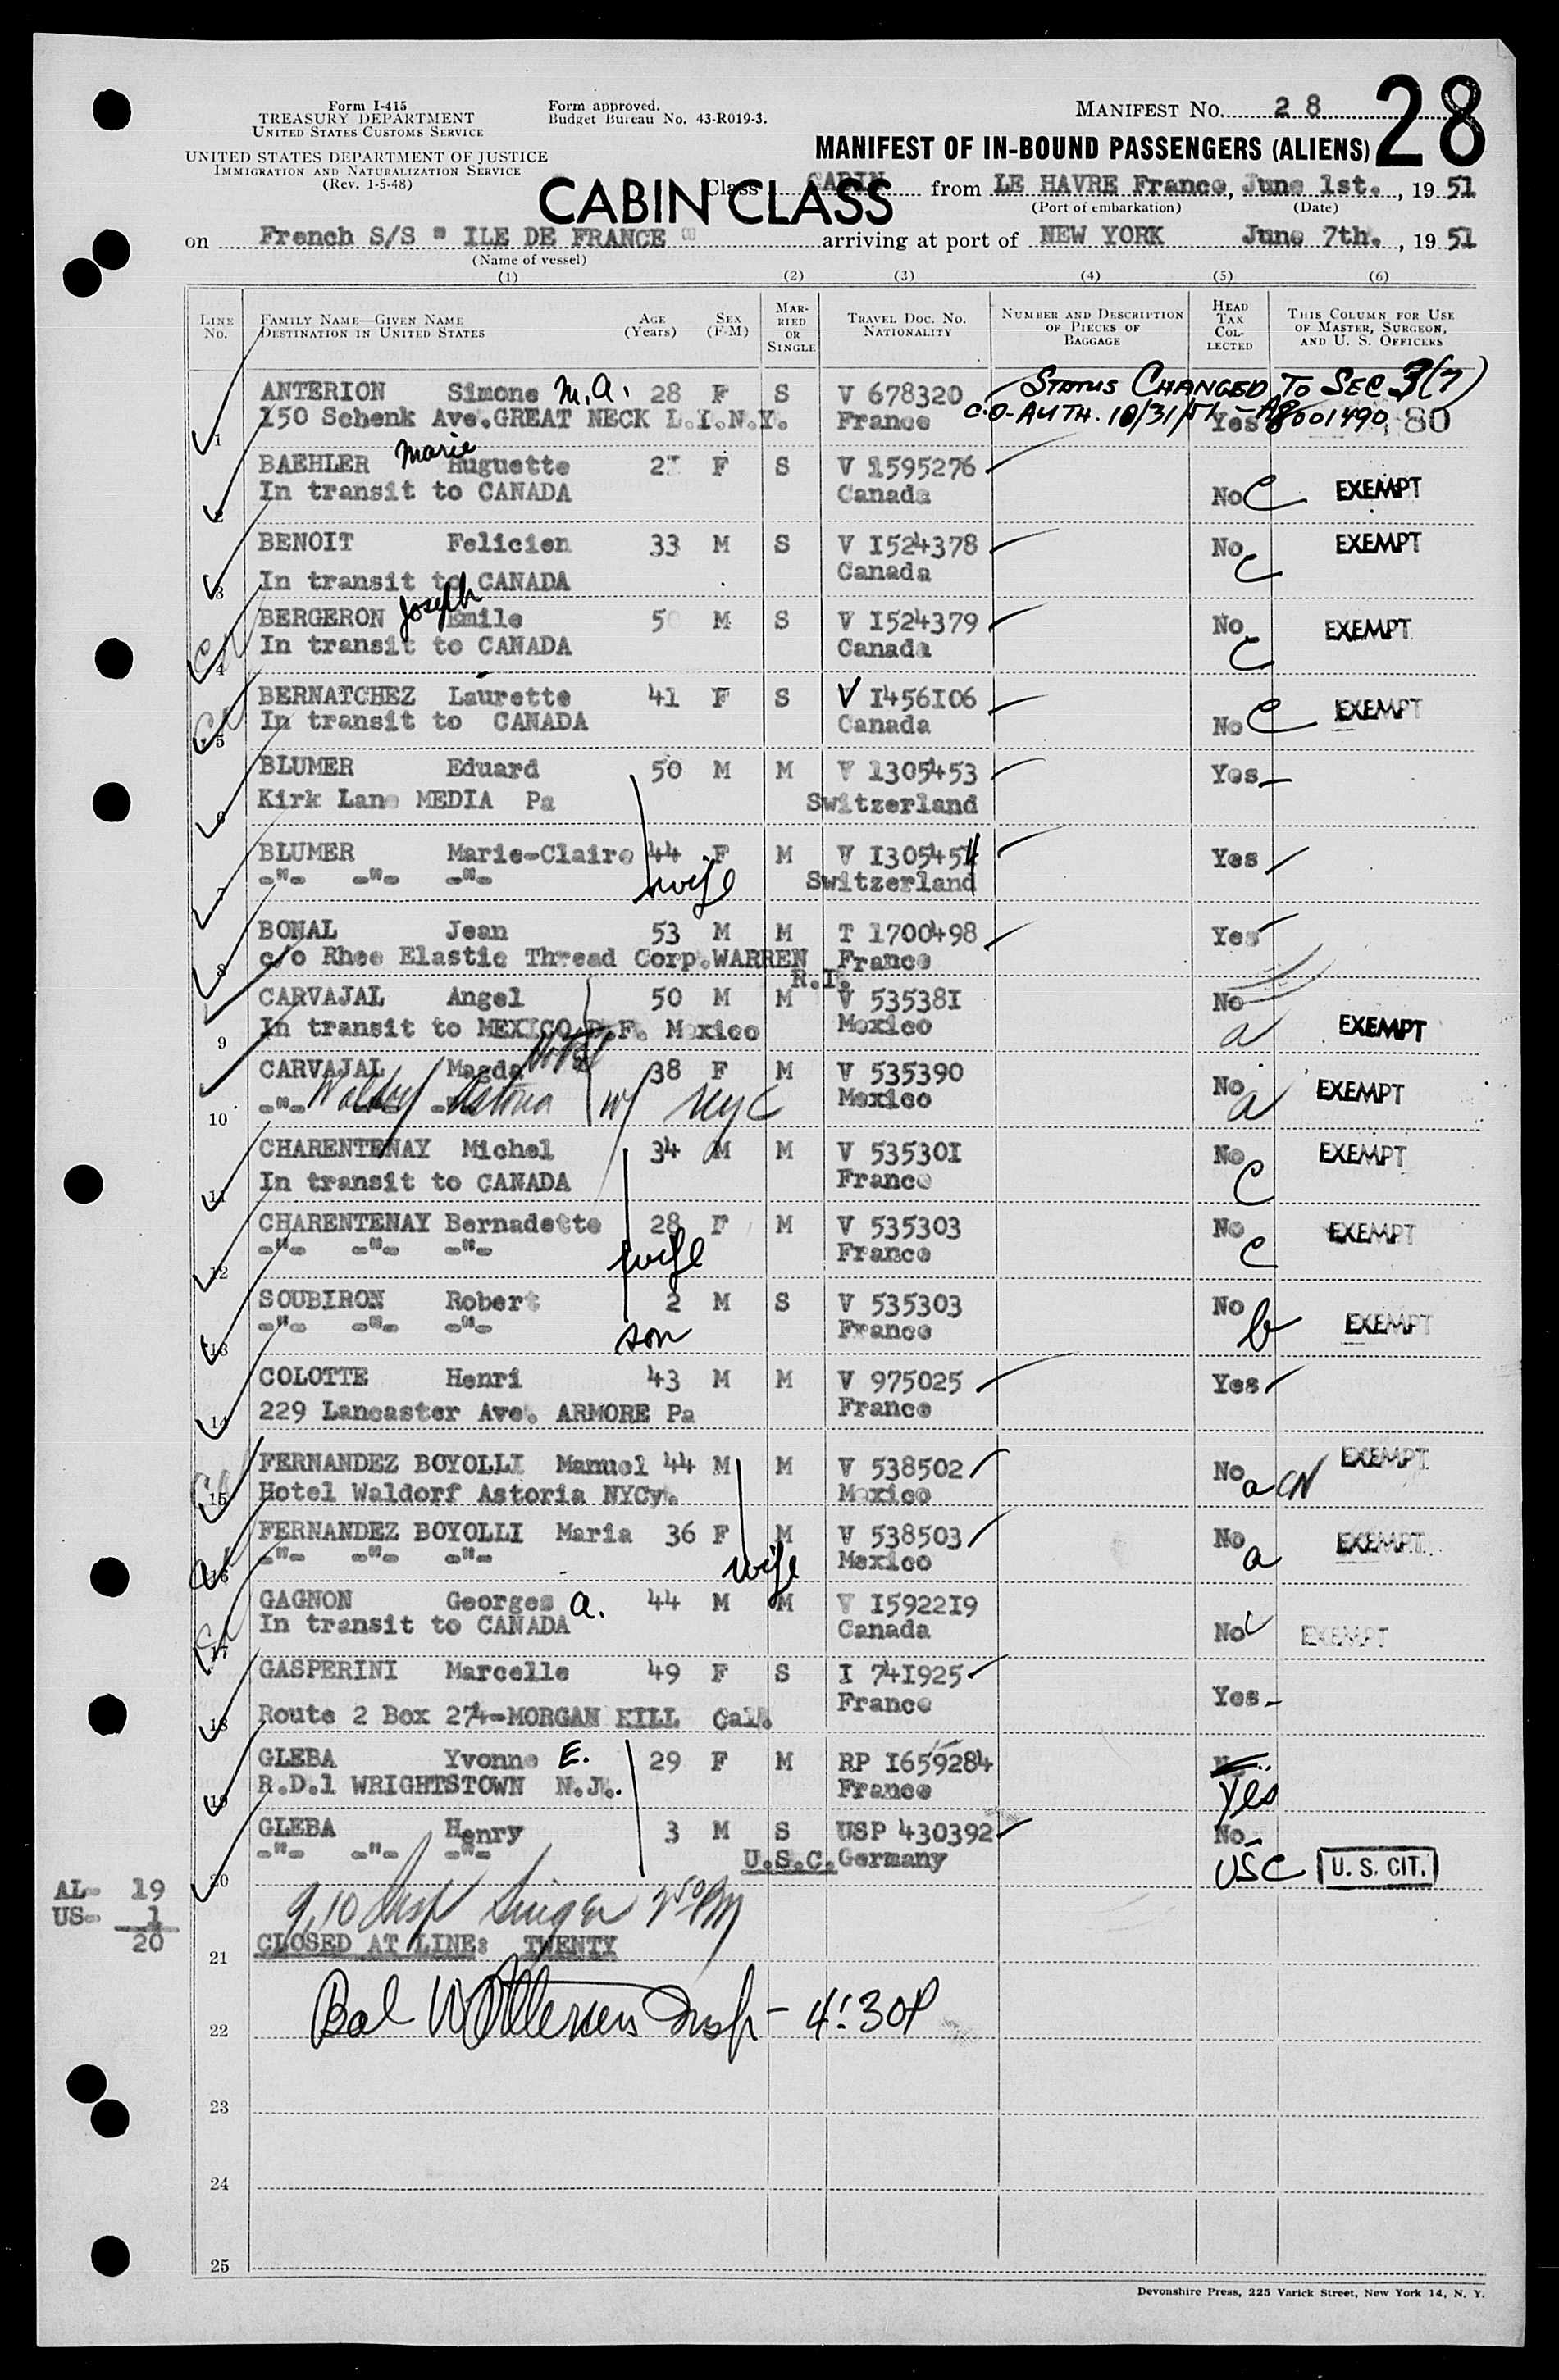 Form I-415
TREASURY DEPARTMENT
UNITED STATES CUSTOMS SERVICE
Form approved.
Budget Bureau No. 43-R019-3.
MANIFEST NO. 28
28
UNITED STATES DEPARTMENT OF JUSTICE
IMMIGRATION AND NATURALIZATION SERVICE
(Rev. 1-5-48)
MANIFEST OF IN-BOUND PASSENGERS (ALIENS)
CABIN CLASS
Class CABIN from LE HAVRE France, June 1st., 1951
(Port of embarkation) (Date)
on French S/S " ILE DE FRANCE " arriving at port of NEW YORK June 7th., 1951
(Name of vessel)
(1) (2) (3) (4) (5) (6)
LINE NO. FAMILY NAME—GIVEN NAME DESTINATION IN UNITED STATES AGE (Years) SEX (F-M) MARRIED OR SINGLE TRAVEL DOC. NO. NATIONALITY NUMBER AND DESCRIPTION OF PIECES OF BAGGAGE HEAD TAX COLLECTED THIS COLUMN FOR USE OF MASTER, SURGEON, AND U. S. OFFICERS
ANTERION Simone M.A. 28 F S V 678320 STATUS CHANGED TO SEC 3(7)
1 150 Schenk Ave. GREAT NECK L.I.N.Y. France C.O. AUTH. 10/31/51 - Yes A8001490 80
BAEHLER Marie Huguette F S V 1595276
2 In transit to CANADA Canada No C EXEMPT
BENOIT Felicien 33 M S V I524378 No C EXEMPT
3 In transit to CANADA Canada
BERGERON Joseph Emile M S V I524379 No C EXEMPT
4 In transit to CANADA Canada
BERNATCHEZ Laurette 41 F S V I456I06
5 In transit to CANADA Canada No C EXEMPT
BLUMER Eduard 50 M M V 1305453 Yes
6 Kirk Lane MEDIA Pa Switzerland
BLUMER Marie-Claire 44 F M V I305454 Yes
7 -"- -"- -"- wife Switzerland
BONAL Jean 53 M M T 1700498 Yes
8 c/o Rhee Elastic Thread Corp. WARREN R.I. France
CARVAJAL Angel 50 M M V 53538I No
9 In transit to MEXICO D.F. Mexico Mexico a EXEMPT
CARVAJAL Magda Hotel 38 F M V 535390 No
10 -"- Waldorf Astoria NYC Mexico a EXEMPT
CHARENTENAY Michel 34 M M V 53530I No C EXEMPT
11 In transit to CANADA France
CHARENTENAY Bernadette 28 F M V 535303 No C EXEMPT
12 -"- -"- -"- wife France
SOUBIRON Robert 2 M S V 535303 No b EXEMPT
13 -"- -"- -"- son France
COLOTTE Henri 43 M M V 975025 Yes
14 229 Lancaster Ave. ARMORE Pa France
FERNANDEZ BOYOLLI Manuel 44 M M V 538502 No a EXEMPT
15 Hotel Waldorf Astoria NYCy. Mexico
FERNANDEZ BOYOLLI Maria 36 F M V 538503 No a EXEMPT
16 -"- -"- -"- wife Mexico
GAGNON Georges A. 44 M M V I5922I9
17 In transit to CANADA Canada No C EXEMPT
GASPERINI Marcelle 49 F S I 74I925
18 Route 2 Box 274-MORGAN KILL Cal. France Yes
GLEBA Yvonne E. 29 F M RP I659284 No
19 R.D.1 WRIGHTSTOWN N.J. France Yes
GLEBA Henry 3 M S USP 430392 No
20 -"- -"- -"- U.S.C. Germany USC U. S. CIT.
AL- 19
US- 1
20
9,10 Insp Singer 2 50 PM
21 CLOSED AT LINE: TWENTY
22 Bal Insp - 4:30P
23
24
25
Devonshire Press, 225 Varick Street, New York 14, N. Y.